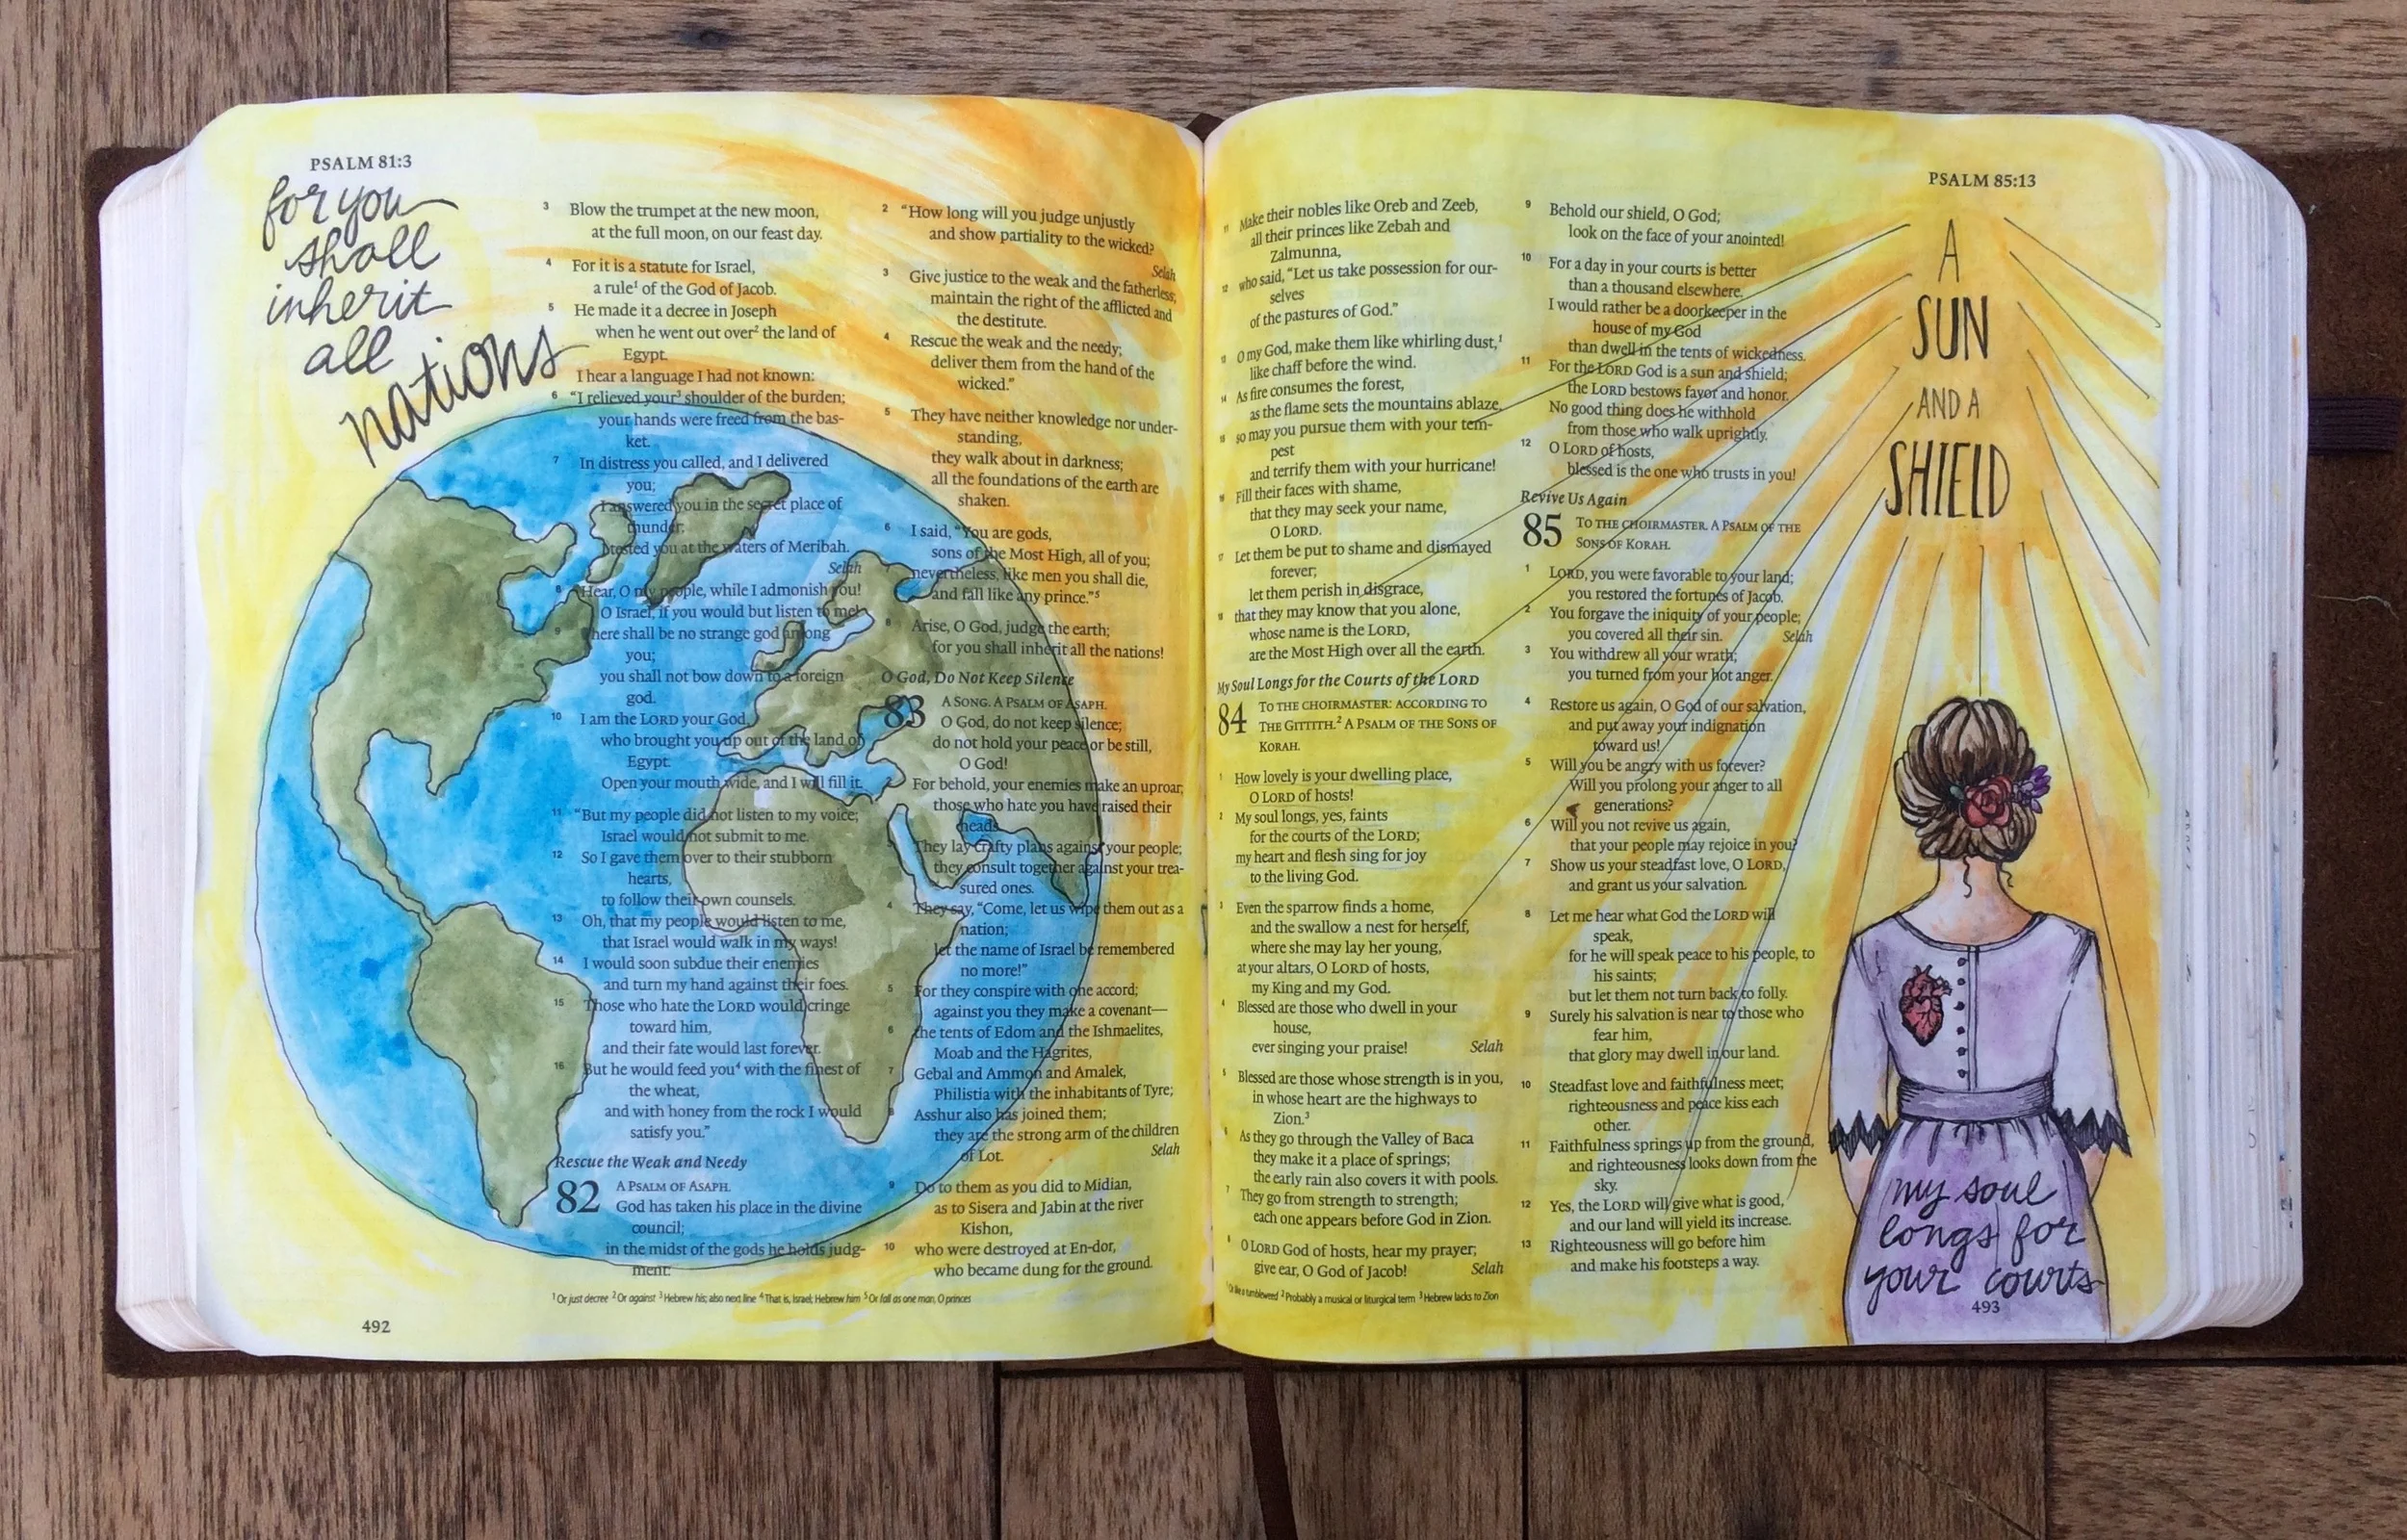 PSALM 81:3
for you
shall
inherit
all
nations
3 Blow the trumpet at the new moon,
at the full moon, on our feast day.
4 For it is a statute for Israel,
a rule¹ of the God of Jacob.
5 He made it a decree in Joseph
when he went out over² the land of
Egypt.
I hear a language I had not known:
6 “I relieved your³ shoulder of the burden;
your hands were freed from the bas-
ket.
7 In distress you called, and I delivered
you;
I answered you in the secret place of
thunder;
I tested you at the waters of Meribah.
Selah
8 Hear, O my people, while I admonish you!
O Israel, if you would but listen to me!
9 There shall be no strange god among
you;
you shall not bow down to a foreign
god.
10 I am the LORD your God,
who brought you up out of the land of
Egypt.
Open your mouth wide, and I will fill it.
11 “But my people did not listen to my voice;
Israel would not submit to me.
12 So I gave them over to their stubborn
hearts,
to follow their own counsels.
13 Oh, that my people would listen to me,
that Israel would walk in my ways!
14 I would soon subdue their enemies
and turn my hand against their foes.
15 Those who hate the LORD would cringe
toward him,
and their fate would last forever.
16 But he would feed you⁴ with the finest of
the wheat,
and with honey from the rock I would
satisfy you.”
Rescue the Weak and Needy
82 A PSALM OF ASAPH.
God has taken his place in the divine
council;
in the midst of the gods he holds judg-
ment:
2 “How long will you judge unjustly
and show partiality to the wicked?
Selah
3 Give justice to the weak and the fatherless;
maintain the right of the afflicted and
the destitute.
4 Rescue the weak and the needy;
deliver them from the hand of the
wicked.”
5 They have neither knowledge nor under-
standing,
they walk about in darkness;
all the foundations of the earth are
shaken.
6 I said, “You are gods,
sons of the Most High, all of you;
nevertheless, like men you shall die,
and fall like any prince.”⁵
8 Arise, O God, judge the earth;
for you shall inherit all the nations!
O God, Do Not Keep Silence
83 A SONG. A PSALM OF ASAPH.
O God, do not keep silence;
do not hold your peace or be still,
O God!
2 For behold, your enemies make an uproar;
those who hate you have raised their
heads.
They lay crafty plans against your people;
they consult together against your trea-
sured ones.
4 They say, “Come, let us wipe them out as a
nation;
let the name of Israel be remembered
no more!”
5 For they conspire with one accord;
against you they make a covenant—
6 the tents of Edom and the Ishmaelites,
Moab and the Hagrites,
7 Gebal and Ammon and Amalek,
Philistia with the inhabitants of Tyre;
8 Asshur also has joined them;
they are the strong arm of the children
of Lot. Selah
9 Do to them as you did to Midian,
as to Sisera and Jabin at the river
Kishon,
10 who were destroyed at En-dor,
who became dung for the ground.
¹ Or just decree ² Or against ³ Hebrew his; also next line ⁴ That is, Israel; Hebrew him ⁵ Or fall as one man, O princes
492
PSALM 85:13
11 Make their nobles like Oreb and Zeeb,
all their princes like Zebah and
Zalmunna,
12 who said, “Let us take possession for our-
selves
of the pastures of God.”
13 O my God, make them like whirling dust,¹
like chaff before the wind.
14 As fire consumes the forest,
as the flame sets the mountains ablaze,
15 so may you pursue them with your tem-
pest
and terrify them with your hurricane!
16 Fill their faces with shame,
that they may seek your name,
O LORD.
17 Let them be put to shame and dismayed
forever;
let them perish in disgrace,
18 that they may know that you alone,
whose name is the LORD,
are the Most High over all the earth.
My Soul Longs for the Courts of the LORD
84 TO THE CHOIRMASTER: ACCORDING TO
THE GITTITH.² A PSALM OF THE SONS OF
KORAH.
1 How lovely is your dwelling place,
O LORD of hosts!
2 My soul longs, yes, faints
for the courts of the LORD;
my heart and flesh sing for joy
to the living God.
3 Even the sparrow finds a home,
and the swallow a nest for herself,
where she may lay her young,
at your altars, O LORD of hosts,
my King and my God.
4 Blessed are those who dwell in your
house,
ever singing your praise! Selah
5 Blessed are those whose strength is in you,
in whose heart are the highways to
Zion.³
6 As they go through the Valley of Baca
they make it a place of springs;
the early rain also covers it with pools.
7 They go from strength to strength;
each one appears before God in Zion.
8 O LORD God of hosts, hear my prayer;
give ear, O God of Jacob! Selah
¹ Or like a tumbleweed ² Probably a musical or liturgical term ³ Hebrew lacks to Zion
9 Behold our shield, O God;
look on the face of your anointed!
10 For a day in your courts is better
than a thousand elsewhere.
I would rather be a doorkeeper in the
house of my God
than dwell in the tents of wickedness.
11 For the LORD God is a sun and shield;
the LORD bestows favor and honor.
No good thing does he withhold
from those who walk uprightly.
12 O LORD of hosts,
blessed is the one who trusts in you!
Revive Us Again
85 TO THE CHOIRMASTER. A PSALM OF THE
SONS OF KORAH.
1 LORD, you were favorable to your land;
you restored the fortunes of Jacob.
2 You forgave the iniquity of your people;
you covered all their sin. Selah
3 You withdrew all your wrath;
you turned from your hot anger.
4 Restore us again, O God of our salvation,
and put away your indignation
toward us!
5 Will you be angry with us forever?
Will you prolong your anger to all
generations?
6 Will you not revive us again,
that your people may rejoice in you?
7 Show us your steadfast love, O LORD,
and grant us your salvation.
8 Let me hear what God the LORD will
speak,
for he will speak peace to his people, to
his saints;
but let them not turn back to folly.
9 Surely his salvation is near to those who
fear him,
that glory may dwell in our land.
10 Steadfast love and faithfulness meet;
righteousness and peace kiss each
other.
11 Faithfulness springs up from the ground,
and righteousness looks down from the
sky.
12 Yes, the LORD will give what is good,
and our land will yield its increase.
13 Righteousness will go before him
and make his footsteps a way.
A
SUN
AND A
SHIELD
my soul
longs for
your courts
493